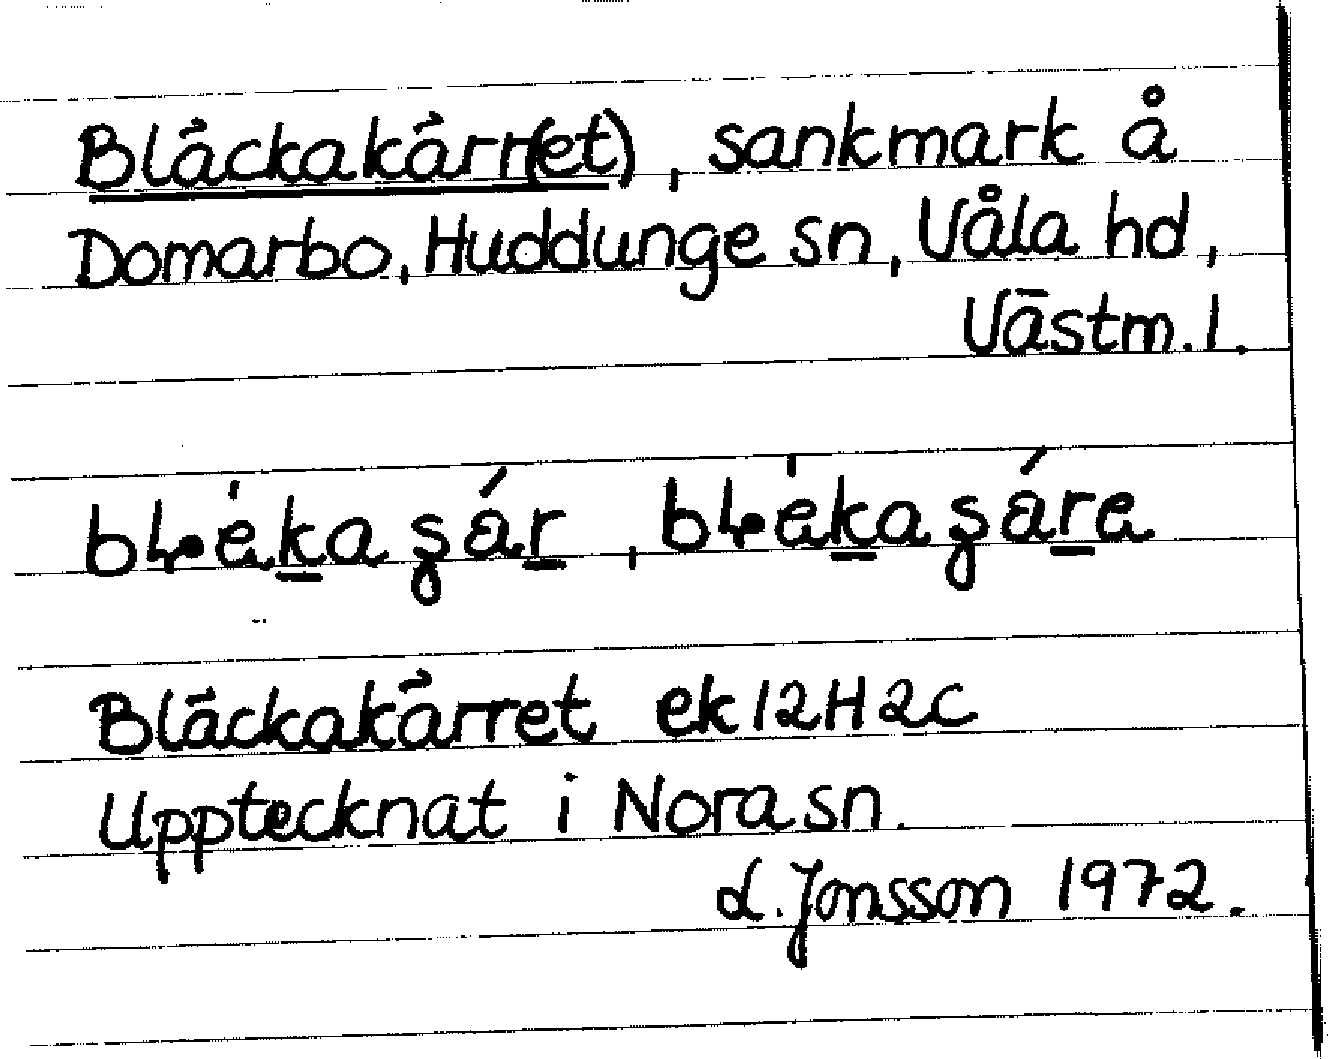 Bläckakärr(et), sankmark å
Domarbo, Huddunge sn, Våla hd,
Västm. l.
Bläckakärret ek 12H2c
Upptecknat i Nora sn.
L. Jonsson 1972.